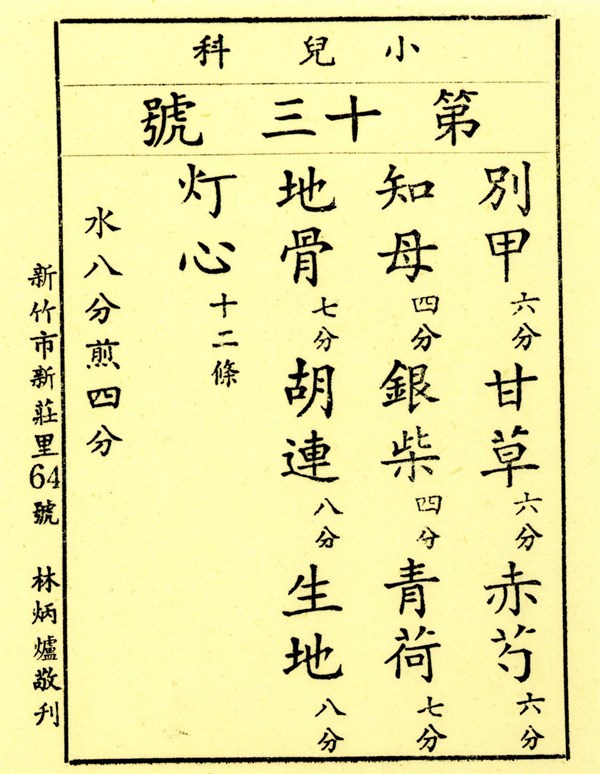 小兒科
第十三號
別甲六分甘草六分赤芍六分
知母四分銀柴四分青荷七分
地骨七分胡連八分生地八分
灯心十二條
水八分煎四分
新竹市新莊里64號 林炳爐敬刊